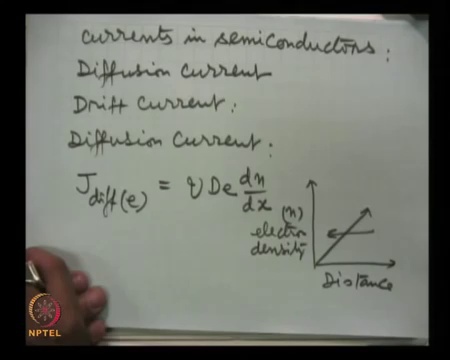 Currents in semiconductors:
Diffusion Current
Drift Current:
Diffusion Current:
J diff(e) = q De dn/dx
(n)
electron
density
Distance
NPTEL